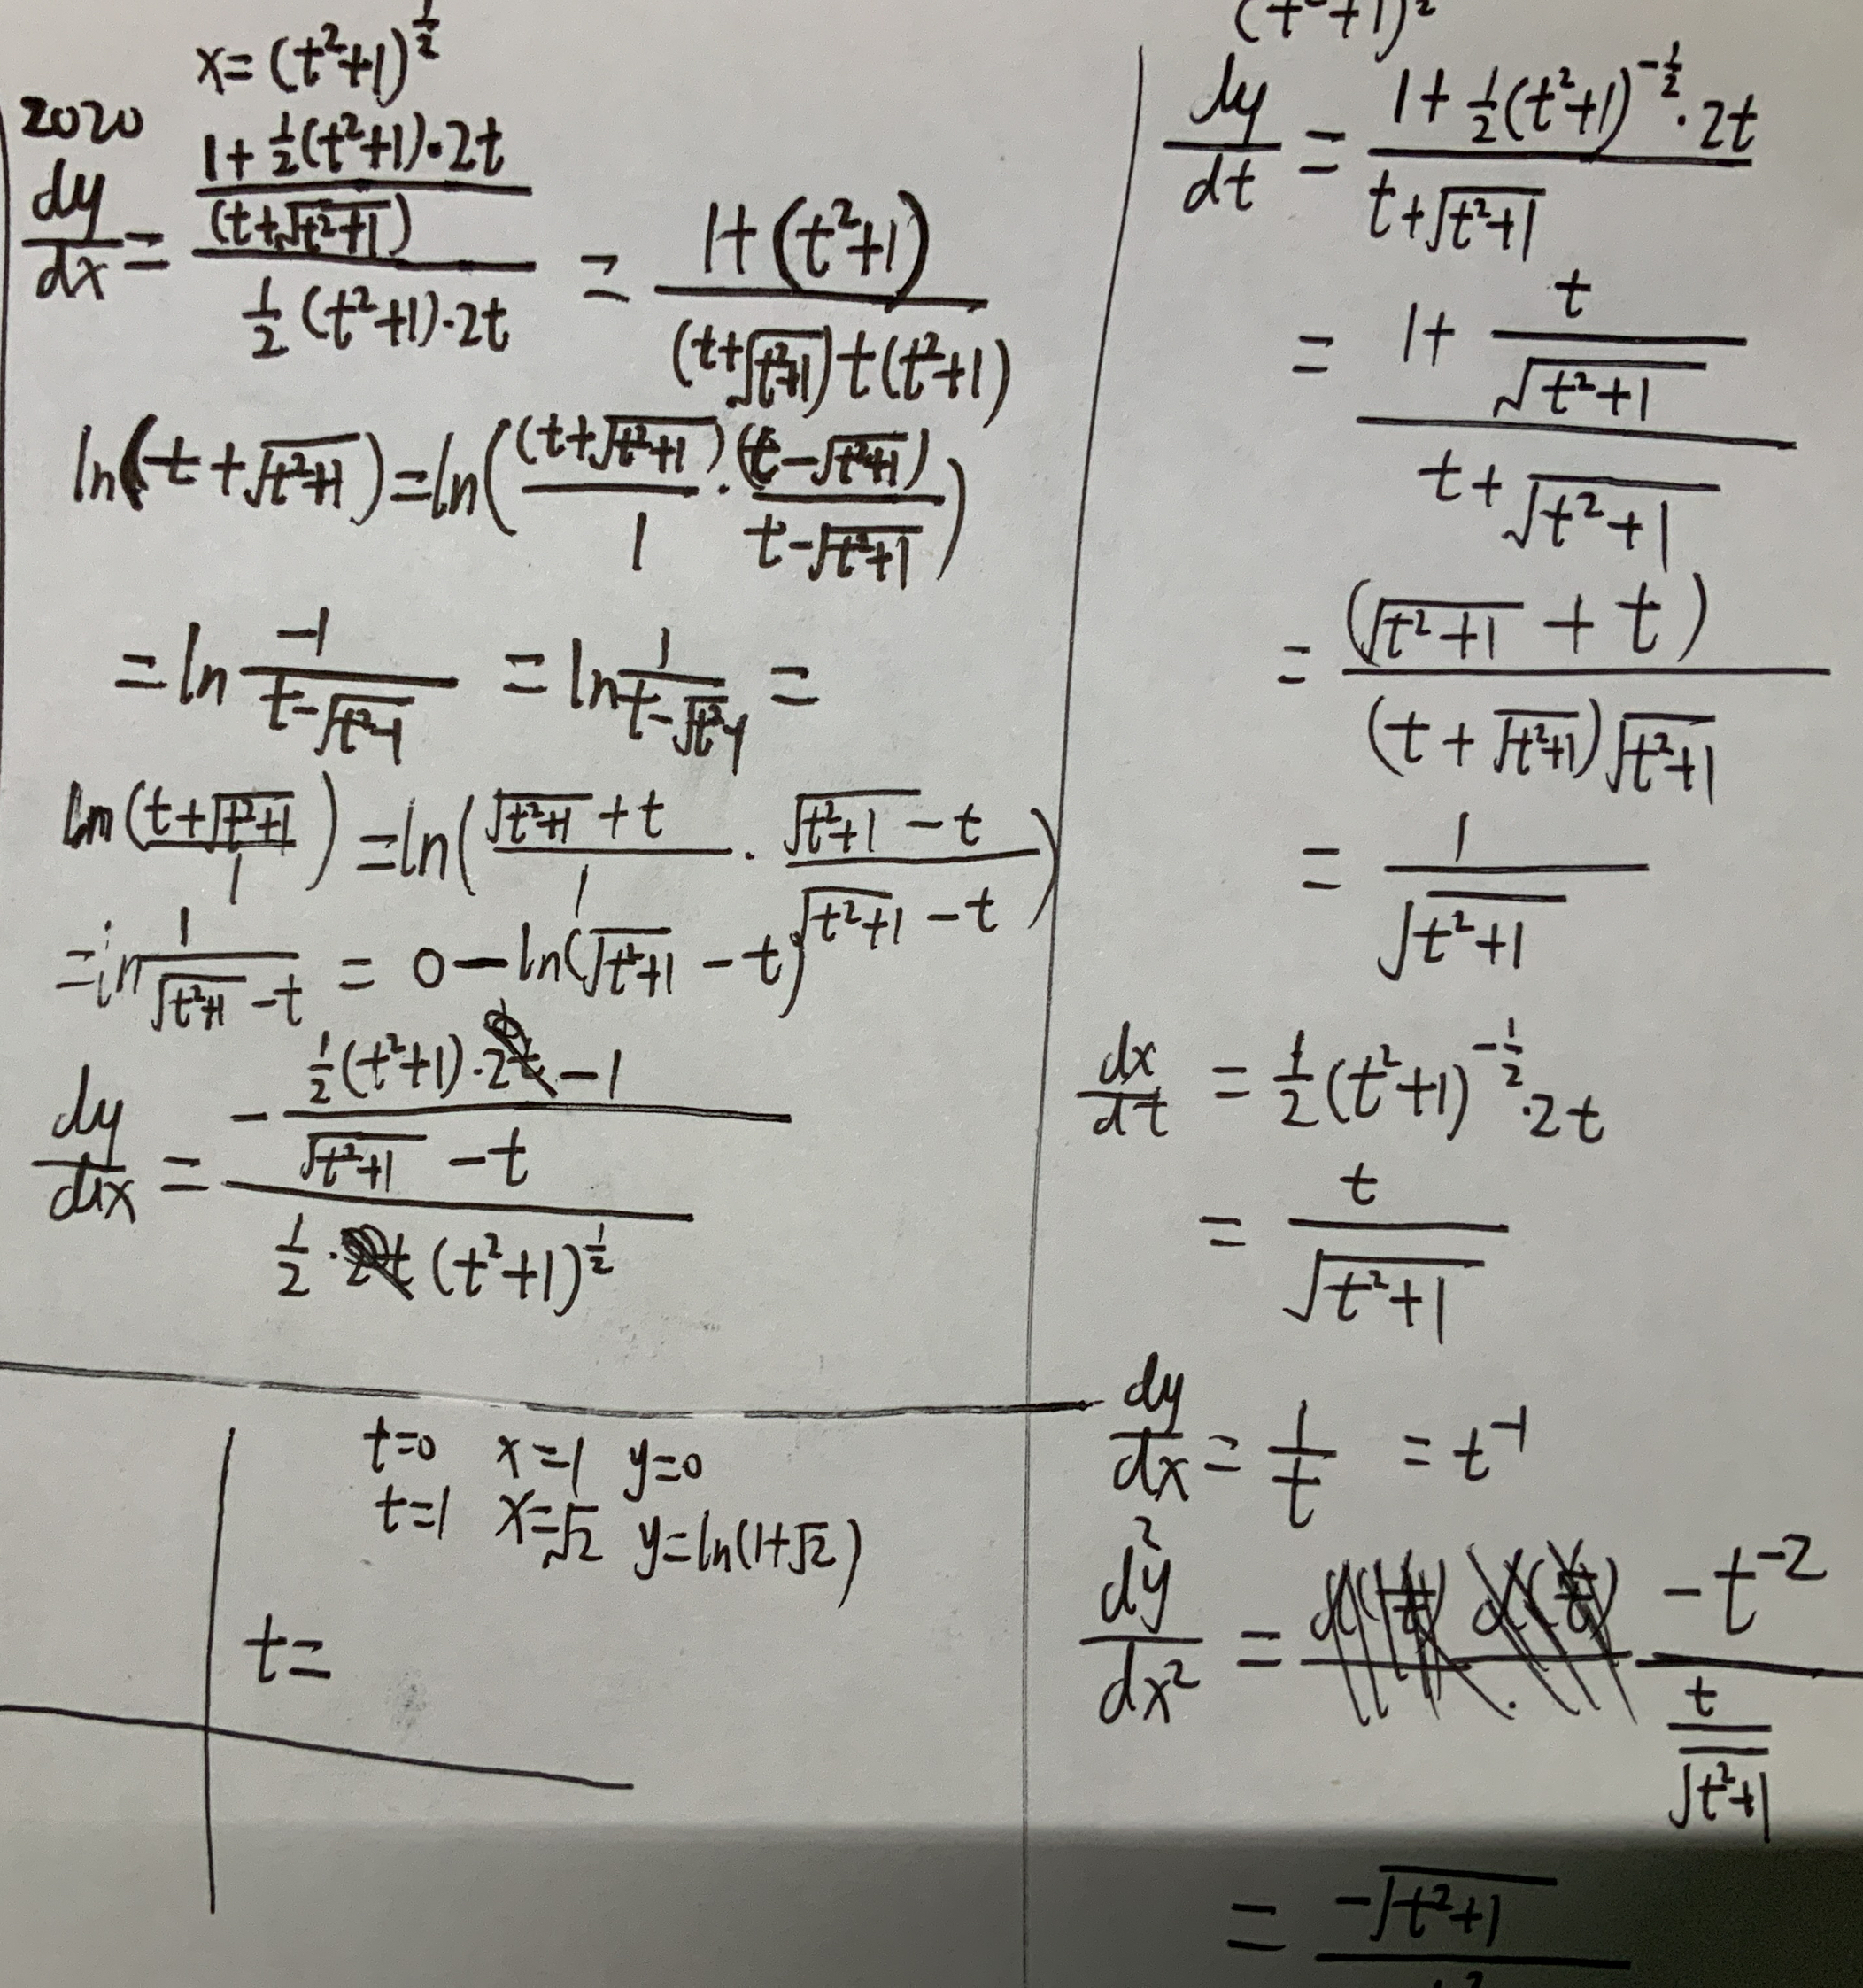 x=(t²+1)^½
2020
dy/dx = ((1+½(t²+1)·2t)/(t+√(t²+1)))/(½(t²+1)·2t) = (1+(t²+1))/((t+√(t²+1))t(t²+1))
ln(t+√(t²+1))=ln((t+√(t²+1))/1·(t-√(t²+1))/(t-√(t²+1)))
=ln -1/(t-√(t²-1)) = ln 1/(t-√(t²-1)) =
ln((t+√(t²+1))/1) =ln((√(t²+1)+t)/1·(√(t²+1)-t)/(√(t²+1)-t))
=ln 1/(√(t²+1)-t) = 0-ln(√(t²+1)-t)
dy/dx = (-(½(t²+1)·2t-1)/(√(t²+1)-t))/(½·2t(t²+1)^½)
t=0 x=1 y=0
t=1 x=√2 y=ln(1+√2)
t=
(t²+1)²
dy/dt = (1+½(t²+1)^-½·2t)/(t+√(t²+1))
= (1+t/√(t²+1))/(t+√(t²+1))
= (√(t²+1)+t)/((t+√(t²+1))√(t²+1))
= 1/√(t²+1)
dx/dt = ½(t²+1)^-½·2t
= t/√(t²+1)
dy/dx = 1/t = t^-1
d²y/dx² = -t^-2/(t/√(t²+1))
= -√(t²+1)